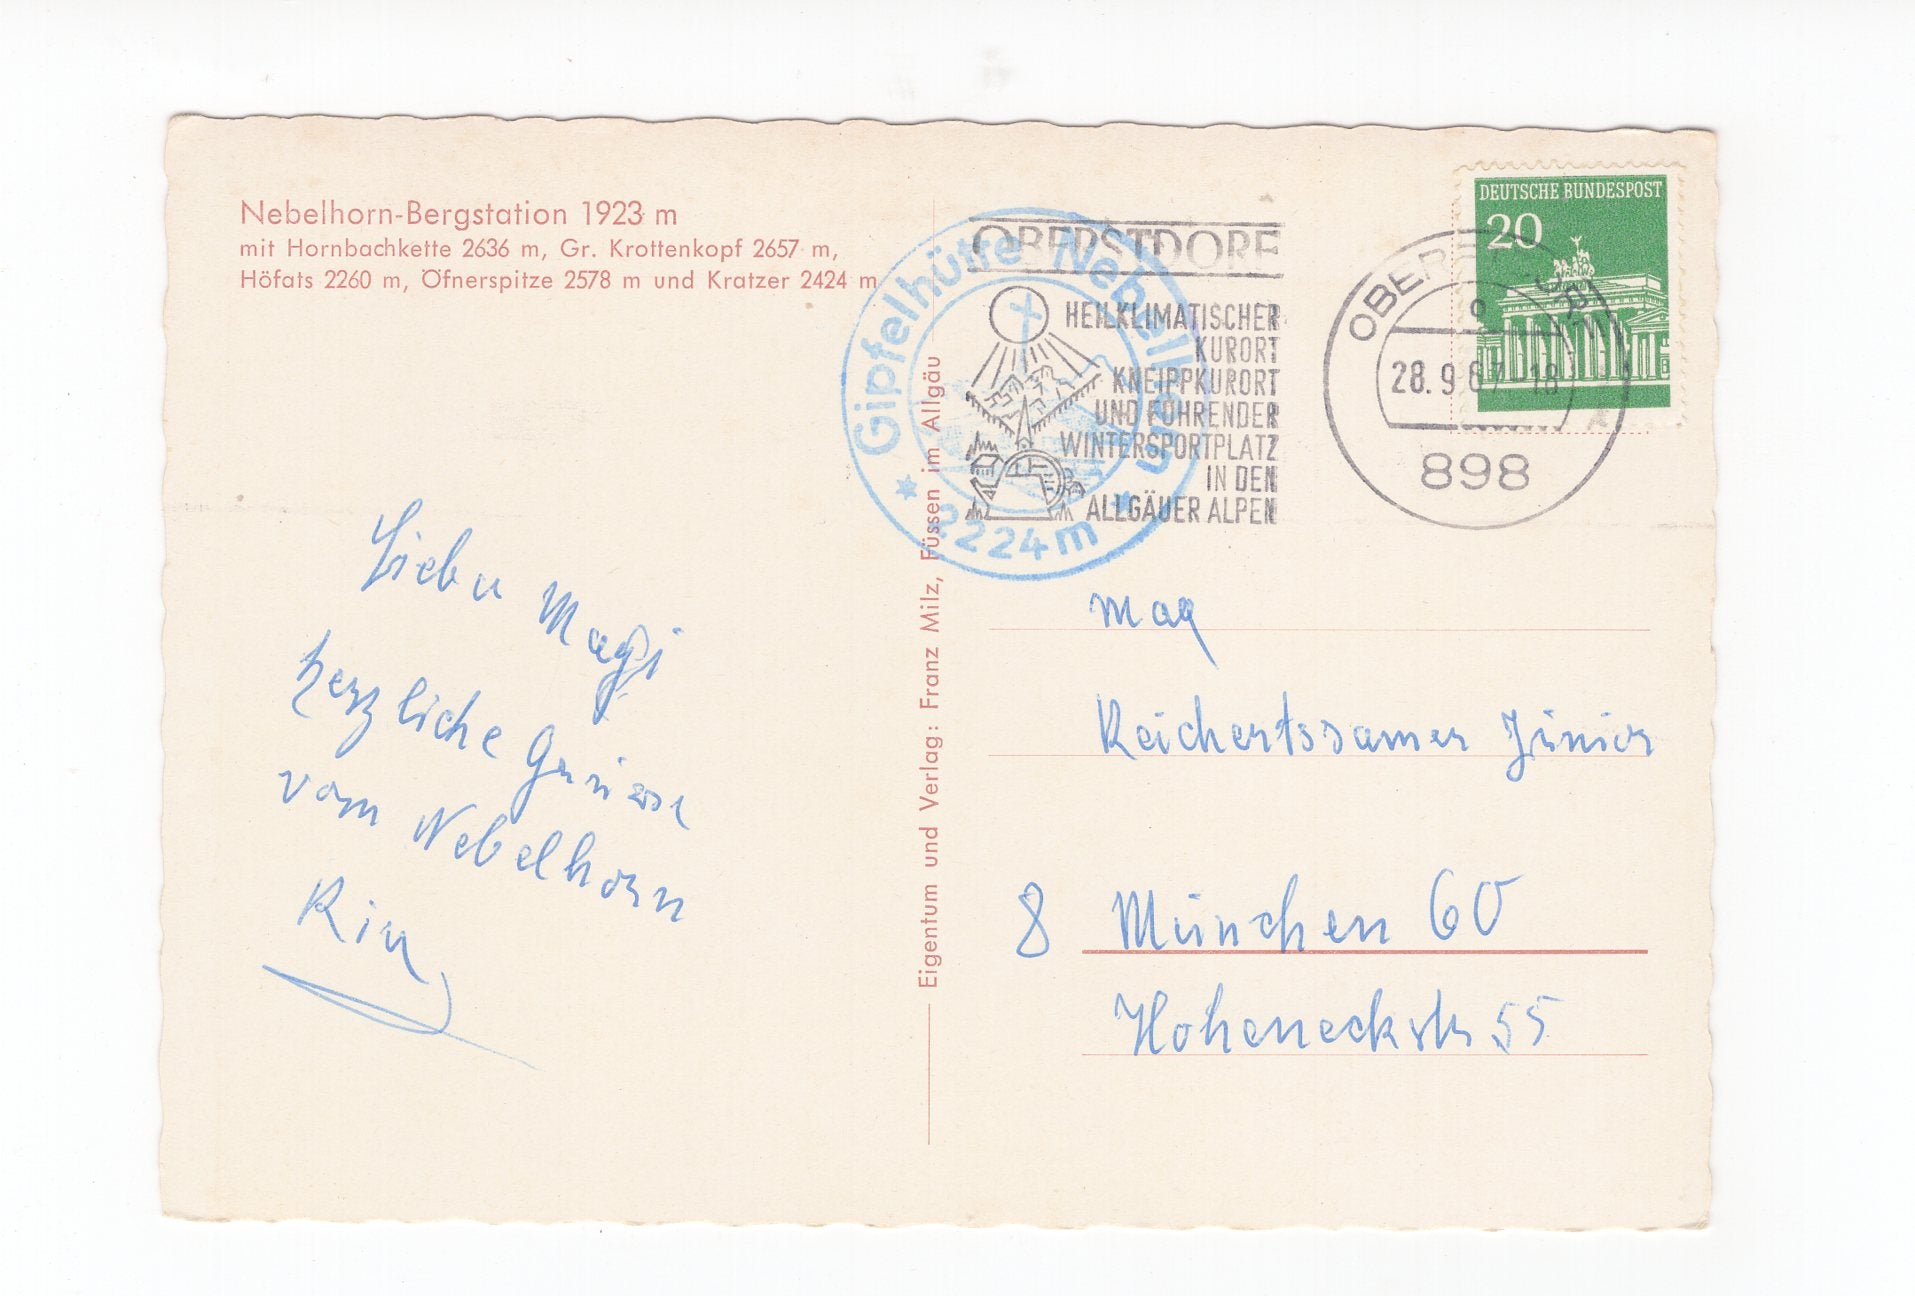 Nebelhorn-Bergstation 1923 m
mit Hornbachkette 2636 m, Gr. Krottenkopf 2657 m,
Höfats 2260 m, Öfnerspitze 2578 m und Kratzer 2424 m
Lieber Magi
herzliche Grüsse
vom Nebelhorn
Eigentum und Verlag: Franz Milz, Füssen im Allgäu
Gipfelhütte Nebelhorn
2224 m
OBERSTDORF
HEILKLIMATISCHER
KURORT
KNEIPPKURORT
UND FÜHRENDER
WINTERSPORTPLATZ
IN DEN
ALLGÄUER ALPEN
DEUTSCHE BUNDESPOST
20
OBERSTDORF
a
28.9.67-18
898
Mag
Reichertssamer Júnior
8 München 60
Hoheneckstr 55